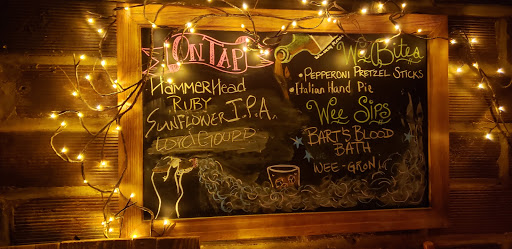 On Tap
Hammerhead
Ruby
Sunflower I.P.A.
Wee Bites
• Pepperoni Pretzel Sticks
• Italian Hand Pie
Wee Sips
Bart's Blood
Bath
Wee-Gronk